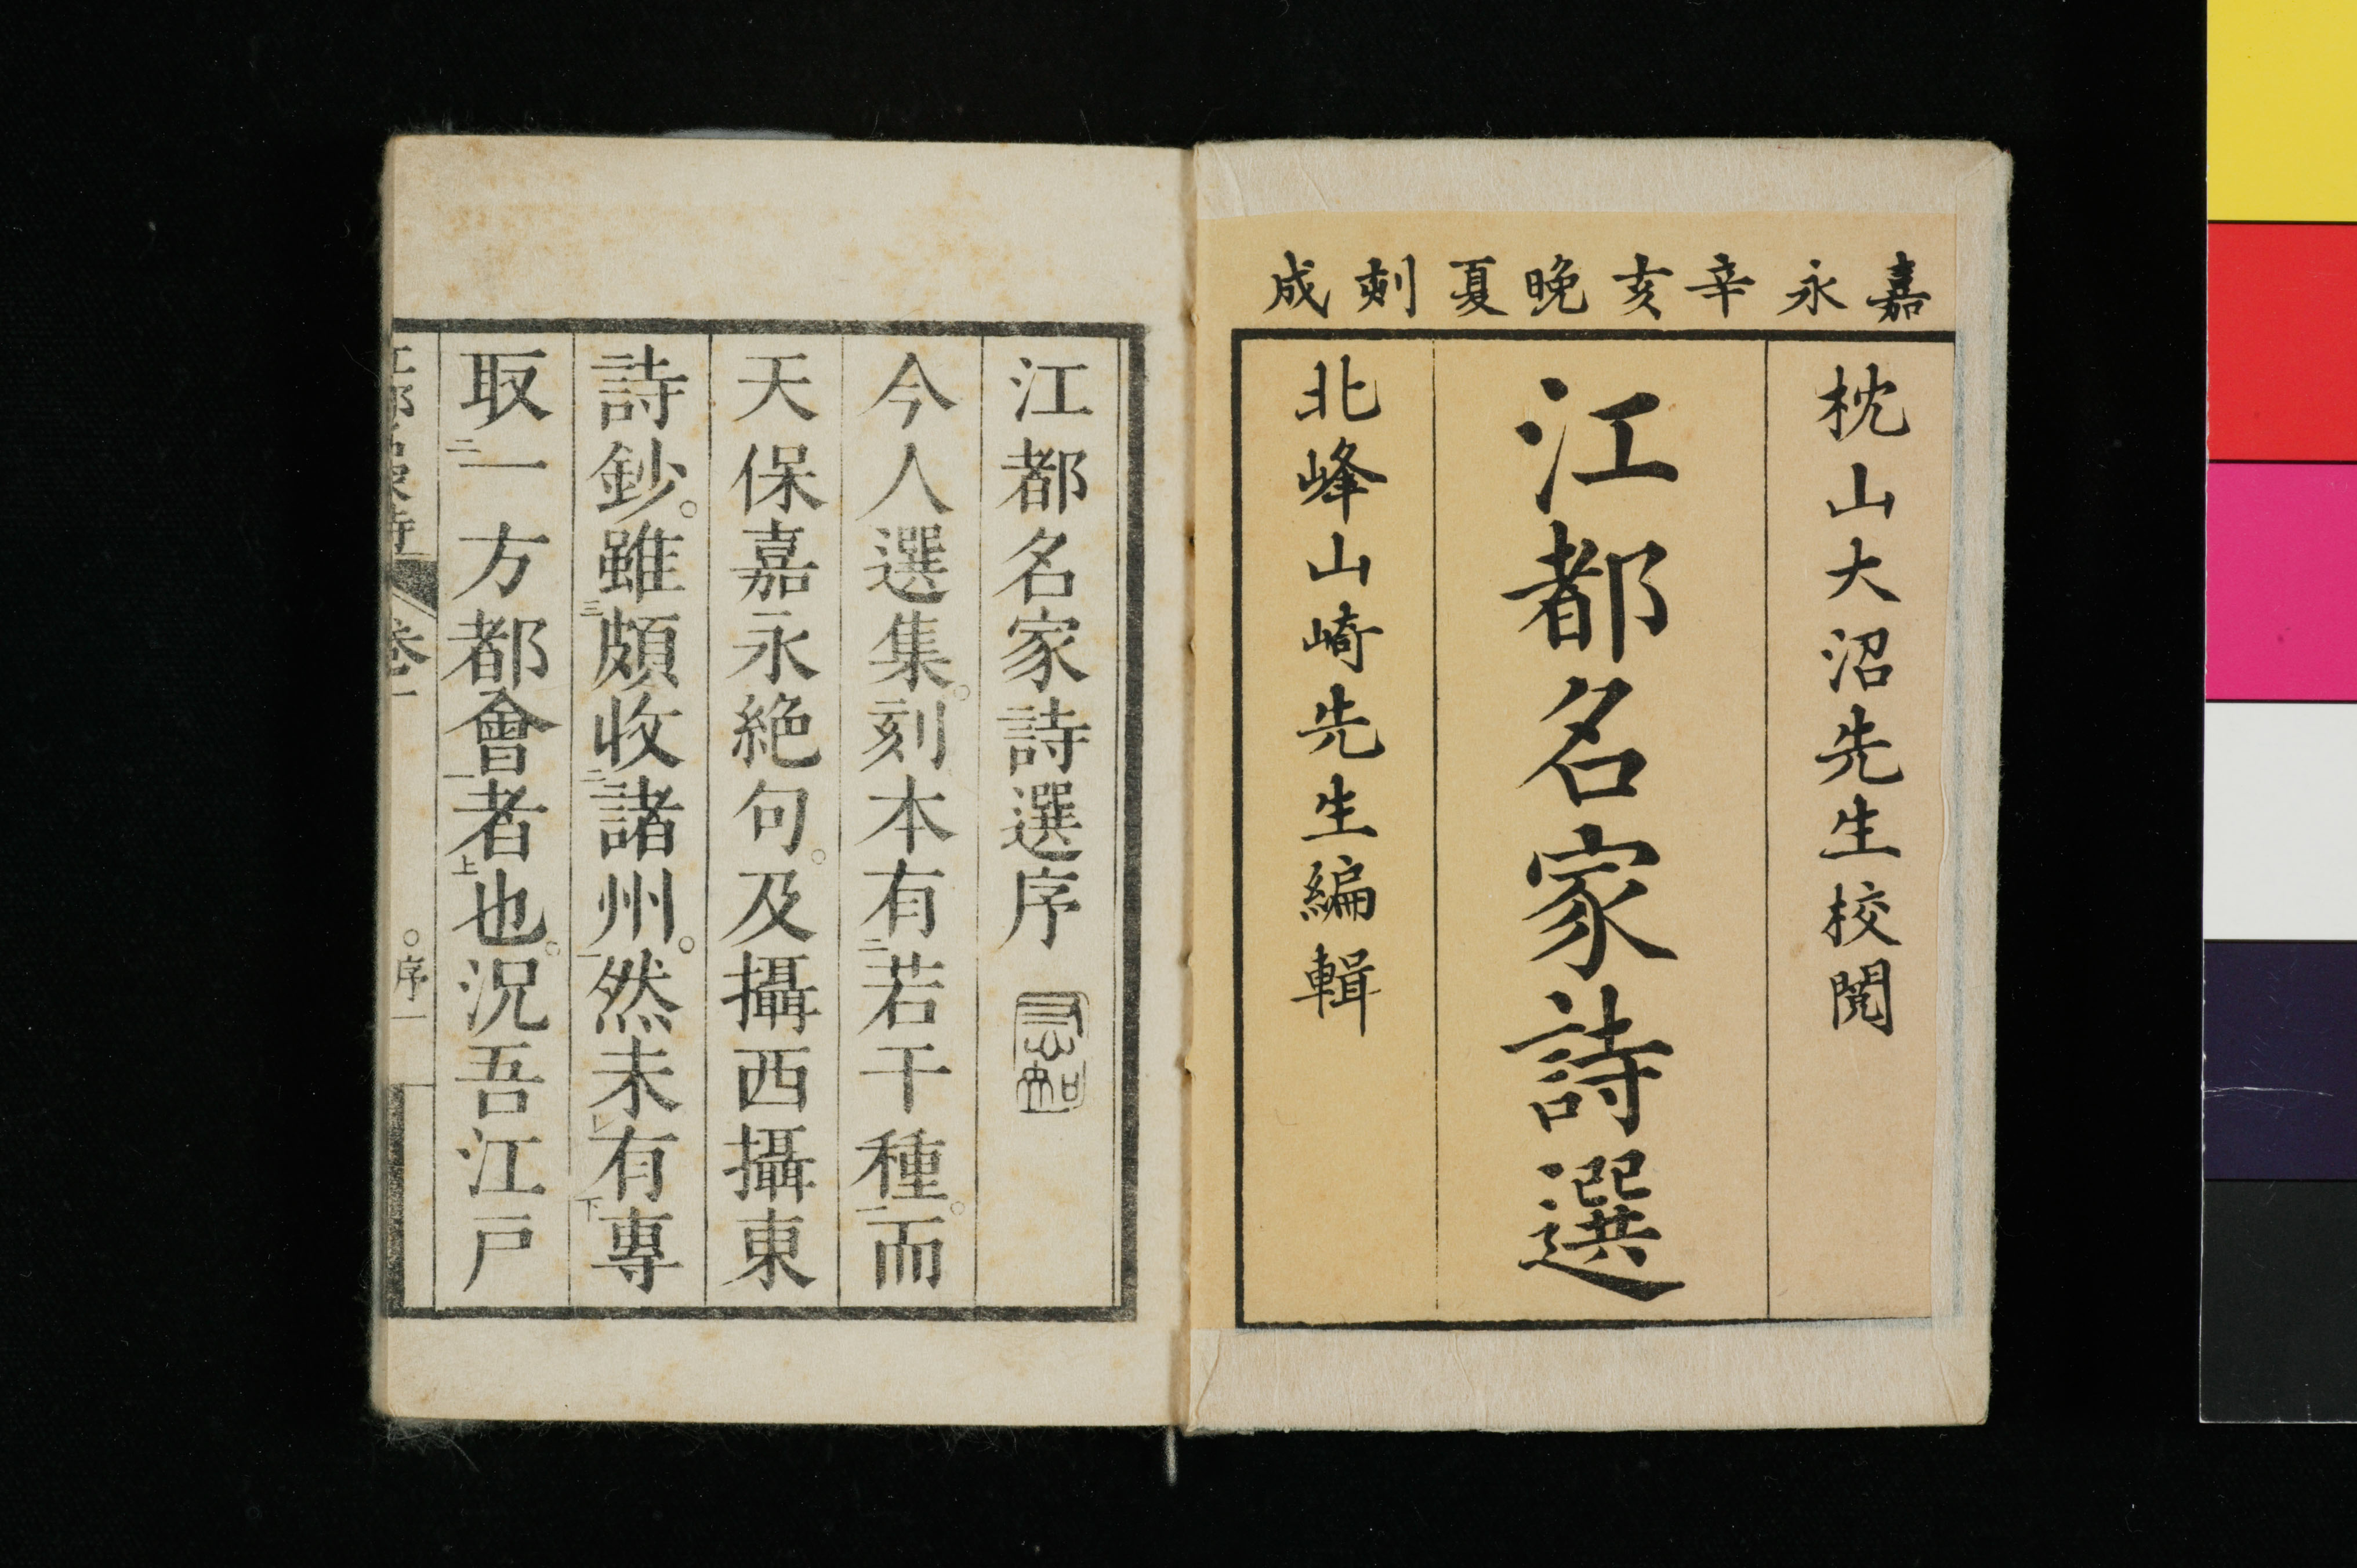 嘉永辛亥晩夏刻成
枕山大沼先生校閲
江都名家詩選
北峰山崎先生編輯
江都名家詩選序
今人選集。刻本有二若干種一。而
天保嘉永絶句。及攝西攝東
詩鈔。雖三頗收二諸州一。然未レ有下專
取二一方都會一者上也。況吾江戸
江都名家詩 卷一 〇序一